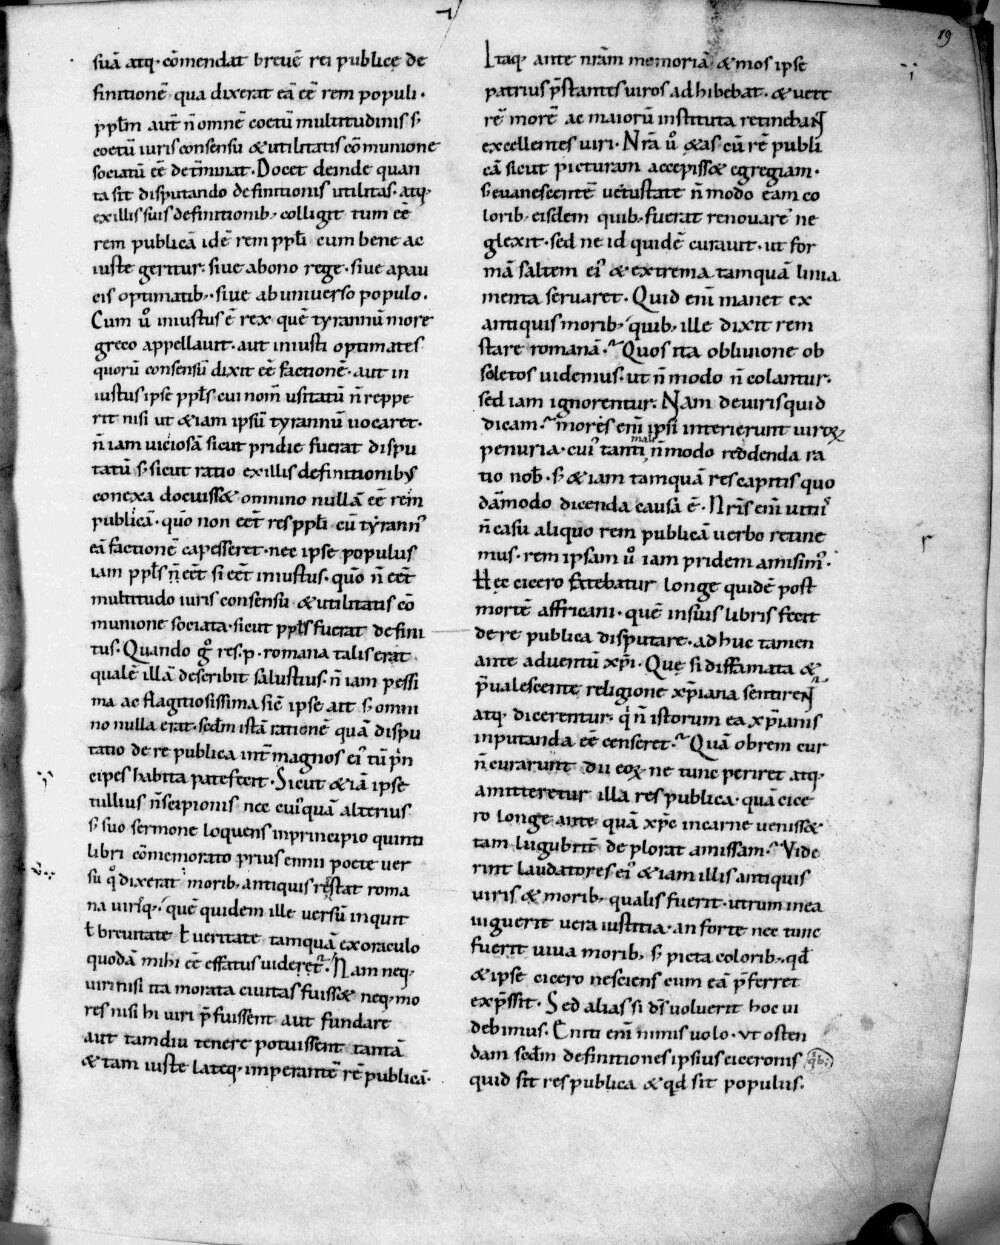 19
suā atq; cōmendat brevē rei publicę de
finitionē qua dixerat eā eē rem populi.
pplm̄ aut̄ n̄ omnē coetū multitudinis s;
coetū iuris consensu & utilitatis cōmunione
sociatū eē det̄minat. Docet deinde quan
ta sit disputando definitionis utilitas. atq;
ex illis suis definitionib; colligit tum eē
rem publicā idē rem ppl̄i cum bene ac
iuste geritur. siue abono rege. siue apau
cis optimatib; siue abuniuerso populo.
Cum u° iniustus ē rex quē tyrannū more
greco appellauit. aut iniusti optimates
quorū consensū dixit eē factionē. aut in
iustus ipse ppl̄s. cui nom̄ usitatū n̄ reppe
rit nisi ut & iam ipsū tyrannū uocaret.
n̄ iam uiciosā sicut pridie fuerat dispu
tatū s; sicut ratio ex illis definitionibus
conexa docuiss& omnino nullā eē rem
publicā. quō non eēt res ppl̄i cū tyrann'
eā factionē capesseret. nec ipse populus
iam ppl̄s n̄ eēt si eēt iniustus. quō n̄ eēt
multitudo iuris consensu & utilitatis cō
munione sociata. sicut ppl̄s fuerat defini
tus. Quando g° res. p. romana talis erat
qualē illā describit salustius. n̄ iam pessi
ma ac flagitiosissima sicē ipse ait s; omni
no nulla erat. sed̄m istā rationē quā dispu
tatio de re publica int̄ magnos ei' tū p̄n
cipes habita patefecit. Sicut & iā ipse
tullius n̄ scipionis nec cui'quā alterius
s; suo sermone loquens inprincipio quinti
libri cōmemorato prius ennii poete ver
su q° dixerat morib; antiquis res stat roma
na virisq; quē quidem ille versū inquit
ł brevitate ł veritate tamquā ex oraculo
quodā mihi eē effatus videret̄. Nam neq;
viri nisi ita morata civitas fuiss& neq; mo
res nisi hi viri p̄fuissent aut fundare
aut tamdiu tenere potuissent tantā
& tam iuste lateq; imperantē rē publicā.
Itaq; ante nr̄am memoriā & mos ipse
patrius p̄stantes viros adhibebat. & vete
rē morē ac maiorū instituta retinebant
excellentes viri. Nr̄a u° &as cū rē publi
cā sicut picturam accepiss& egregiam.
s; euanescentē vetustate n̄ modo eam co
lorib; eisdem quib; fuerat renovare ne
glexit. sed ne id quidē curauit. ut for
mā saltem ei' & extrema tamquā linia
menta servaret. Quid eni̅ manet ex
antiquis morib; quib; ille dixit rem
stare romanā. Quos ita oblivione ob
soletos videmus. ut n̄ modo n̄ colantur.
sed iam ignorentur. Nam de viris quid
dicam. mores eni̅ ipsi interierunt viroꝝ
penuria. cui' tanti mali n̄ modo reddenda ra
tio nob̄. s; & iam tamquā res capitis quo
dāmodo dicenda causa ē. Nr̄is eni̅ vitiis
n̄ casu aliquo rem publicā verbo retine
mus. rem ipsam u° iam pridem amisim'.
Hęc cicero fatebatur longe quidē post
mortē affricani. quē in suis libris fecit
de re publica disputare. adhuc tamen
ante adventū xp̄i. Quę si diffamata &
p̄ualescente religione xp̄iana sentirent
atq; dicerentur. q̇ n̄ istorum ea xp̄ianis
inputanda eē censeret. Quā obrem cur
n̄ curarunt dii eoꝝ ne tunc periret atq;
amitteretur illa res publica. quā cice
ro longe ante quā xp̄c incarne veniss&
tam lugubrit̄ deplorat amissam. Vide
rint laudatores ei' & iam illis antiquis
viris & morib; qualis fuerit. utrum in ea
viguerit vera iustitia. an forte nec tunc
fuerit viva morib; s; picta colorib; qd̄
& ipse cicero nesciens cum eā p̄ferret
exp̄ssit. Sed alias si ds̄ voluerit hoc vi
debimus. Eniti eni̅ nimis volo. ut osten
dam sed̄m definitiones ipsius ciceronis q̇b;
quid sit res publica & qd̄ sit populus.